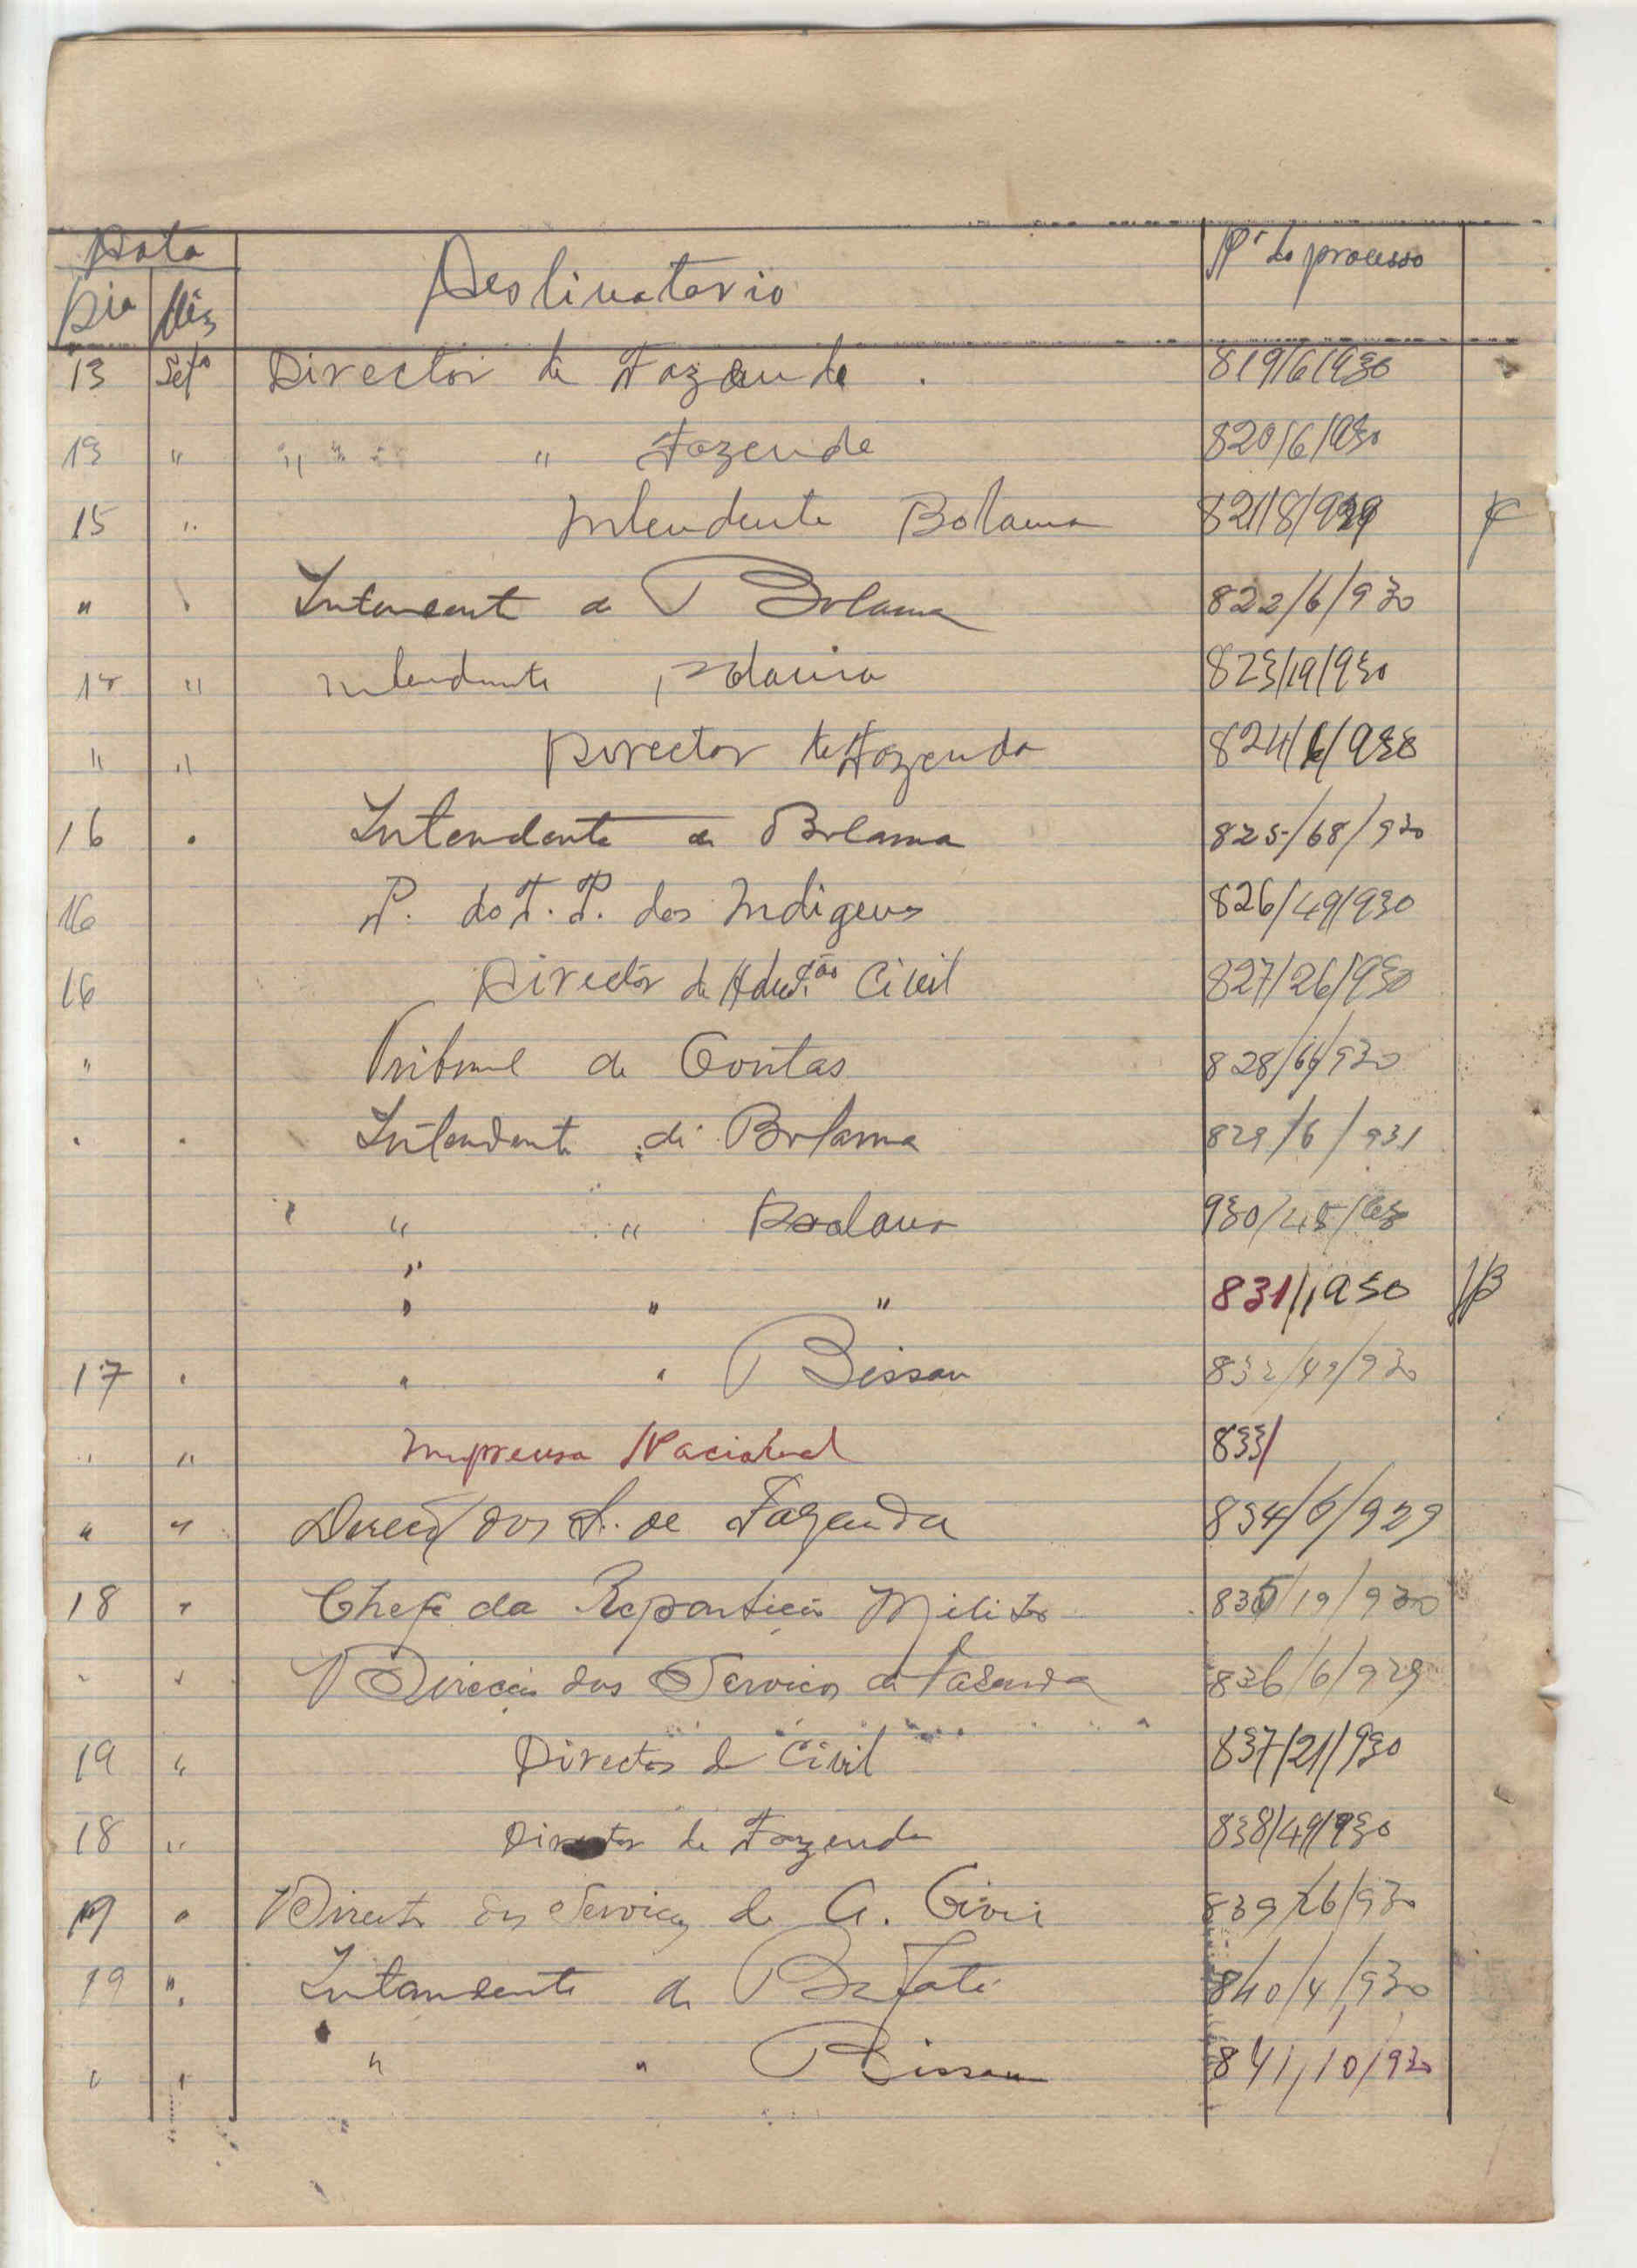 Data
Destinatario
Nº do processo
Dia Mês
13 Setº Director de Fazenda . 819/6/930
13 " " " Fazenda 820/6/930
15 " Intendente Bolama 821/8/929
" Intendente de Bolama 822/6/930
" Intendente Bolama 823/19/930
" " Director de Fazenda 824/6/930
16 . Intendente de Bolama 825/68/930
16 P. do T. P. dos Indigenas 826/49/930
16 Director de Admção Civil 827/26/930
" Tribunal de Contas 828/66/930
. . Intendente de Bolama 829/6/931
" " Bolama 930/45/
" " " 831/1930
17 . " " Bissau 832/49/930
. " Imprensa Nacional 833/
" " Direcç dos S. de Fazenda 834/6/929
18 " Chefe da Repartição Militar 835/19/930
" " Direcção dos Serviços de Fazenda 836/6/929
19 " Director de Civil 837/21/930
18 " Director de Fazenda 838/49/930
19 " Director dos Serviços de A. Civil 839/26/930
19 " Intendente de Bafatá 840/4/930
" " " " Bissau 841/10/930